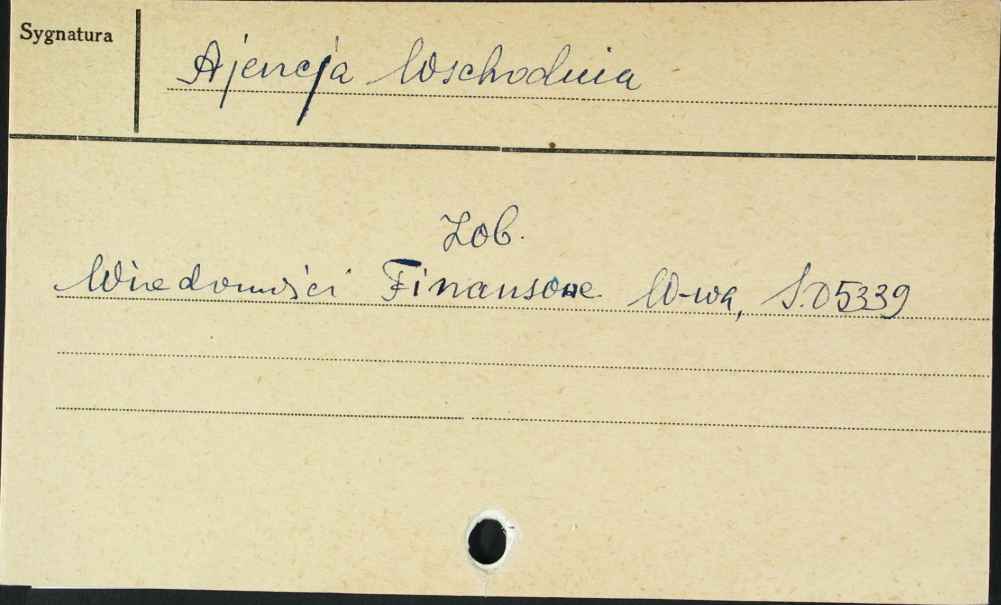 Sygnatura
Ajencja Wschodnia
Zob.
Wiedomości Finansowe W-wa, S.05339